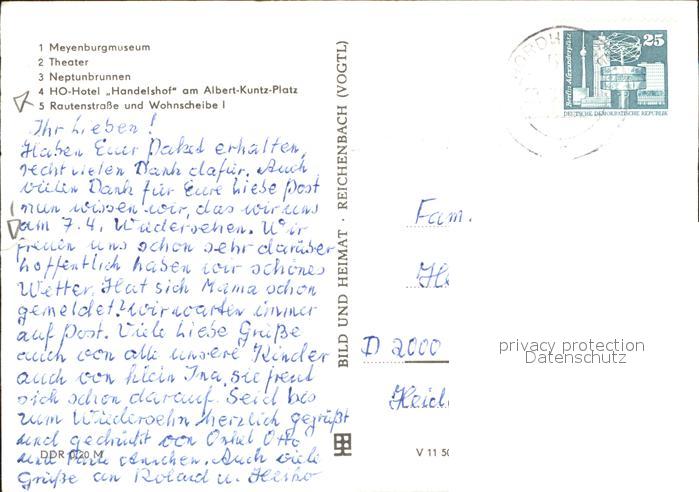 1 Meyenburgmuseum
2 Theater
3 Neptunbrunnen
4 HO-Hotel „Handelshof" am Albert-Kuntz-Platz
5 Rautenstraße und Wohnscheibe I
Ihr Lieben!
Haben Euer Paket erhalten,
recht vielen Dank dafür. Auch
vielen Dank für Eure liebe Post
nun wissen wir, das wir uns
am 7.4. Wiedersehen. Wir
freuen uns schon sehr darüber
hoffentlich haben wir schönes
Wetter. Hat sich Mama schon
gemeldet? wir warten immer
auf Post. Viele liebe Grüße
auch von alle unsere Kinder
auch von klein Ina, sie freut
sich schon darauf. Seid bis
zum Wiedersehn herzlich gegrüßt
und gedrückt von Onkel Otto
und Tante Ännchen. Auch viele
Grüße an Roland u.
DDR 0,20 M
BILD UND HEIMAT · REICHENBACH (VOGTL)
V 11 50
NORDH
Berlin, Alexanderplatz
25
DEUTSCHE DEMOKRATISCHE REPUBLIK
Fam.
He
D 2000
Heid
privacy protection
Datenschutz